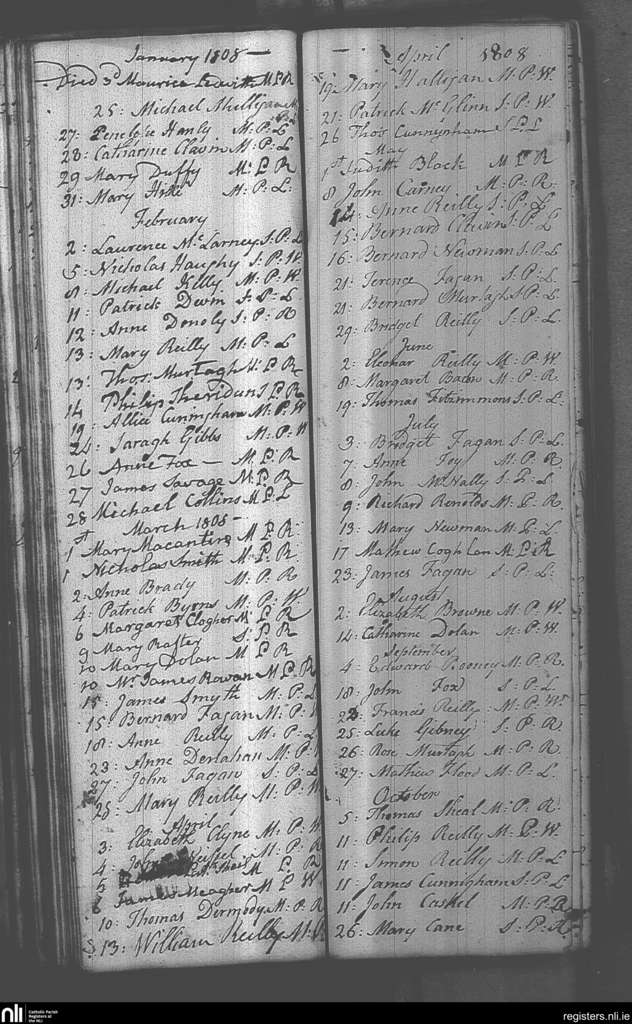 January 1808 —
Died 3d Maurice Leavith M.P.R
25: Michael Mulligan M
27: Penelope Hanly M:P:L
28: Catharine Clavin M:P:L
29 Mary Duffy M P R
31: Mary Hill M:P:L:
February
2: Laurence McLarney S:P:L
5: Nicholas Haughy S:P:W
8: Michael Kelly M:P:W
11: Patrick Devin S:P:L
12: Anne Donoly S:P:R
13: Mary Reilly M:P:L
13: Thos: Murtagh M:P:R
14 Philip Theridun S P R
19: Allice Cuningham M:P:W
24: Saragh Gibbs M:P:W
26 Anne Fox — M.P.R
27 James Savage M:P:R
28 Michael Collins M.P.L
March 1808 —
1st Mary Macantire M P.R:
1 Nicholas Smith M:P:R
2: Anne Brady M:P:R
4: Patrick Byrns M:P:W:
6 Margaret Clogher M P R
9 Mary Rafter S:P:R
10 Mary Dolan M P R
10 Mr James Rowan M P.R
15 James Smyth M:P:L
15: Bernard Fagan M:P:
18: Anne Reilly M:P:L
23: Anne Denlahan M:P:
27 John Fagan S:P:L
28: Mary Reilly M:P:W
April
3: Elizabeth Clyne M:P:W
4: John M:P:R
5 M P R
6 James Meagher M P W
10: Thomas Dermody M:P:R
13: William Reilly M:P
— April 1808
19 Mary Halligan M:P:W.
21: Patrick McGlinn S:P:W
26 Thos Cunnynham S P L
May
1st Judith Black M P R
8 John Carney M:P:R:
14: Anne Reilly S:P:L
15: Bernard Clavin S:P:L
16: Bernard Newman S:P:L
21: Terence Fagan S.P:L
21: Bernard Murtagh S:P:L
29: Bridget Reilly S:P:L.
June
2: Eleonar Reilly M:P:W
8 Margaret Bacon M:P:R
19: Thomas Fitzimmons S:P:L:
July
3: Bridget Fagan S:P:L
7: Anne Foy M:P.R.
8: John McNally S:P:L
9: Richard Renolds M:P:R
13: Mary Newman M:P:L
17 Mathew Coghlan M:P:R
23: James Fagan S:P:L:
August
2: Elizabeth Browne M:P:W.
14: Catharine Dolan M:P:W.
September
4: Edward Rooney M:P.R.
18: John Fox S:P:L
23: Francis Reilly M:P:W:
25: Luke Gibney S:P:R
26: Rose Murtagh M:P:R
27: Mathew Flood M:P:L.
October
5: Thomas Sheal M:P:R
11: Philip Reilly M:P:W
11: Simon Reilly M:P:L
11: James Cunningham S:P:L
11: John Caskel M:P:R
26: Mary Cane S:P:R
nli
Catholic Parish
Registers at
the NLI
registers.nli.ie